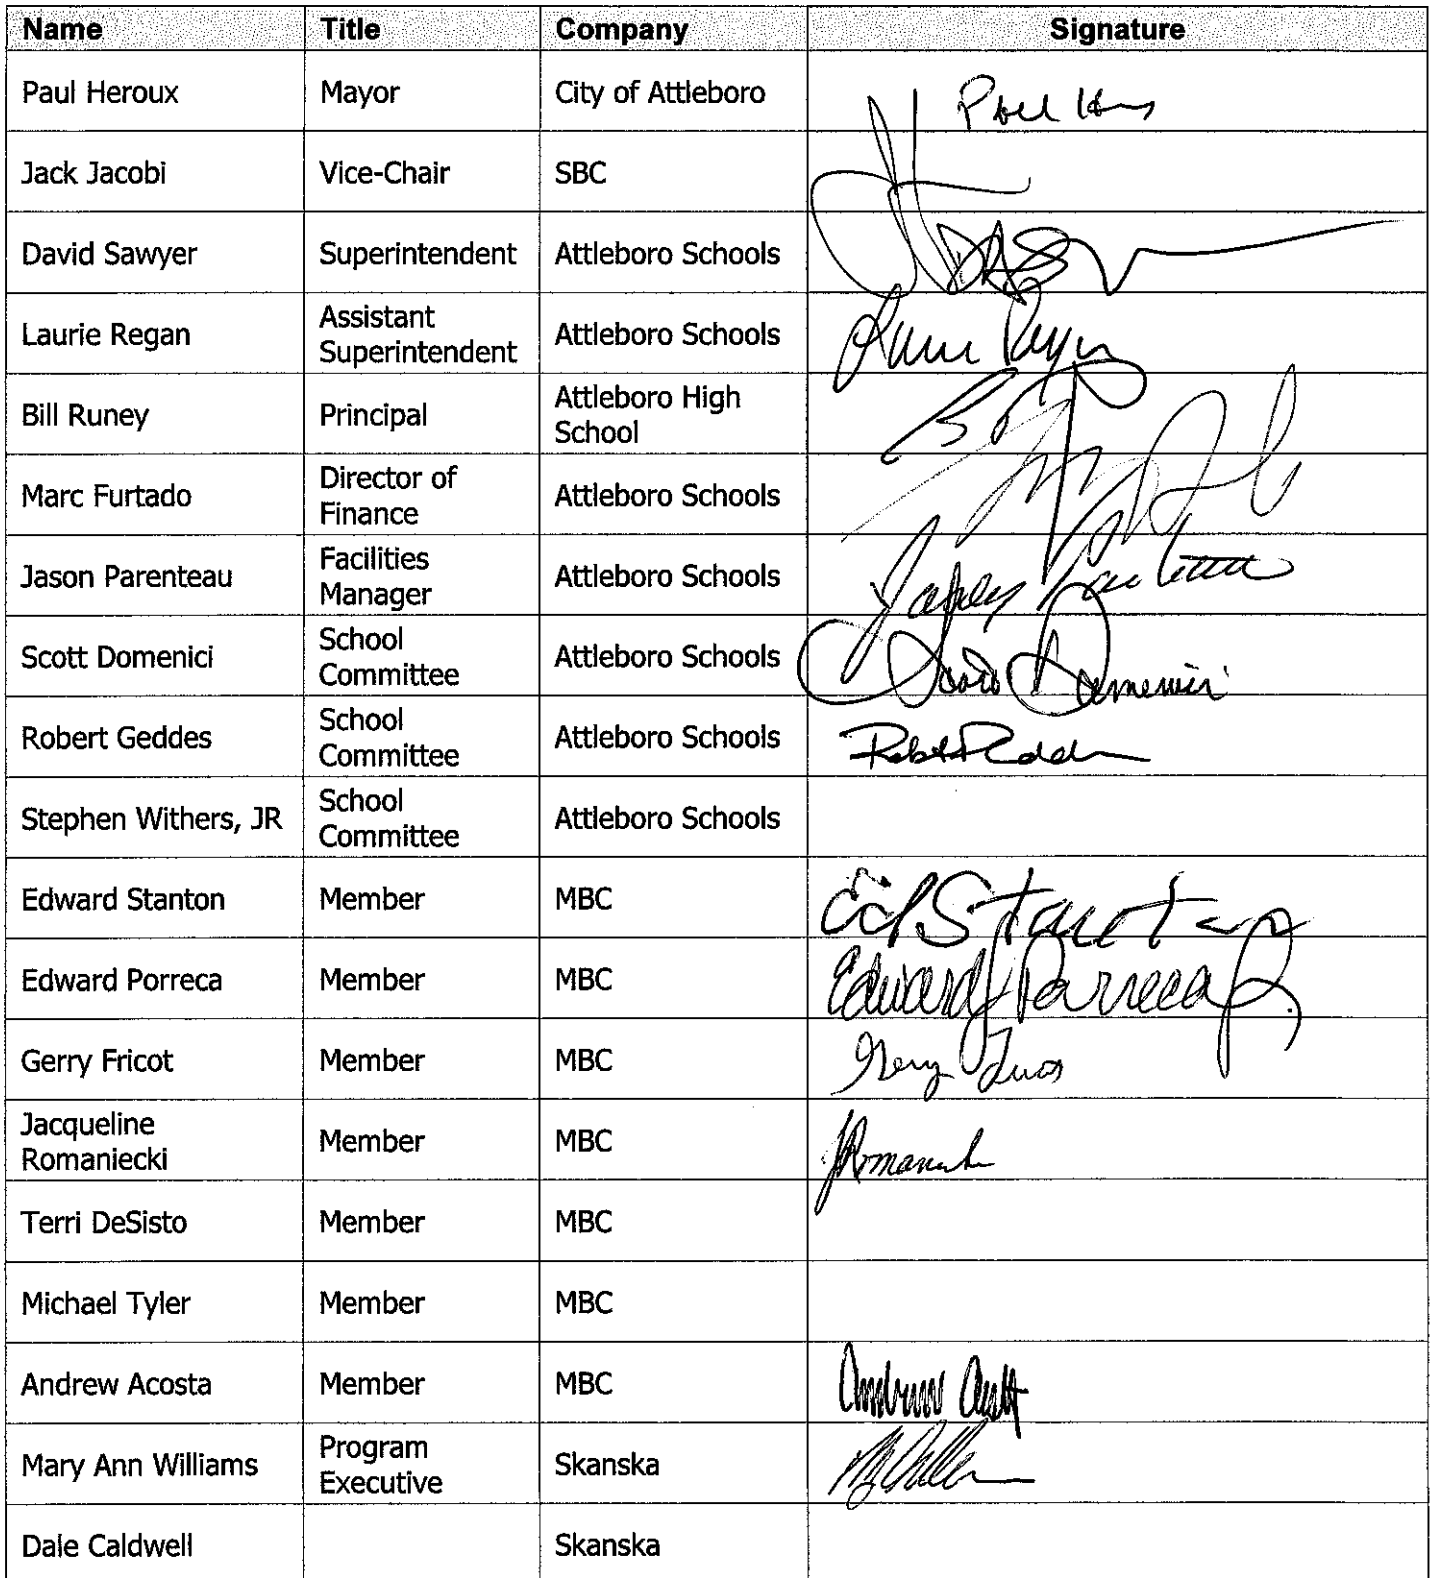 Name Title Company Signature
Paul Heroux Mayor City of Attleboro
Jack Jacobi Vice-Chair SBC
David Sawyer Superintendent Attleboro Schools
Laurie Regan Assistant Superintendent Attleboro Schools
Bill Runey Principal Attleboro High School
Marc Furtado Director of Finance Attleboro Schools
Jason Parenteau Facilities Manager Attleboro Schools
Scott Domenici School Committee Attleboro Schools
Robert Geddes School Committee Attleboro Schools
Stephen Withers, JR School Committee Attleboro Schools
Edward Stanton Member MBC Ed Stanton
Edward Porreca Member MBC Edward Porreca Jr.
Gerry Fricot Member MBC
Jacqueline Romaniecki Member MBC
Terri DeSisto Member MBC
Michael Tyler Member MBC
Andrew Acosta Member MBC
Mary Ann Williams Program Executive Skanska
Dale Caldwell Skanska